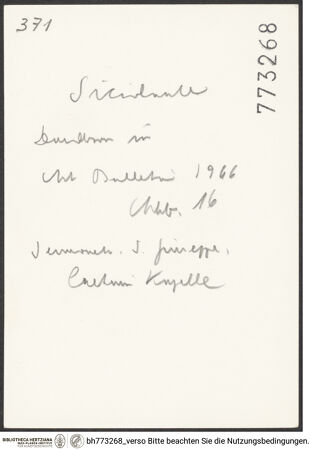 371
773268
Siciolante
Davidson in
Art Bulletin 1966
Abb. 16
Sermoneta. S. Giuseppe.
Caetani Kapelle
BIBLIOTHECA HERTZIANA
MAX-PLANCK-INSTITUT
FÜR KUNSTGESCHICHTE
bh773268_verso Bitte beachten Sie die Nutzungsbedingungen.